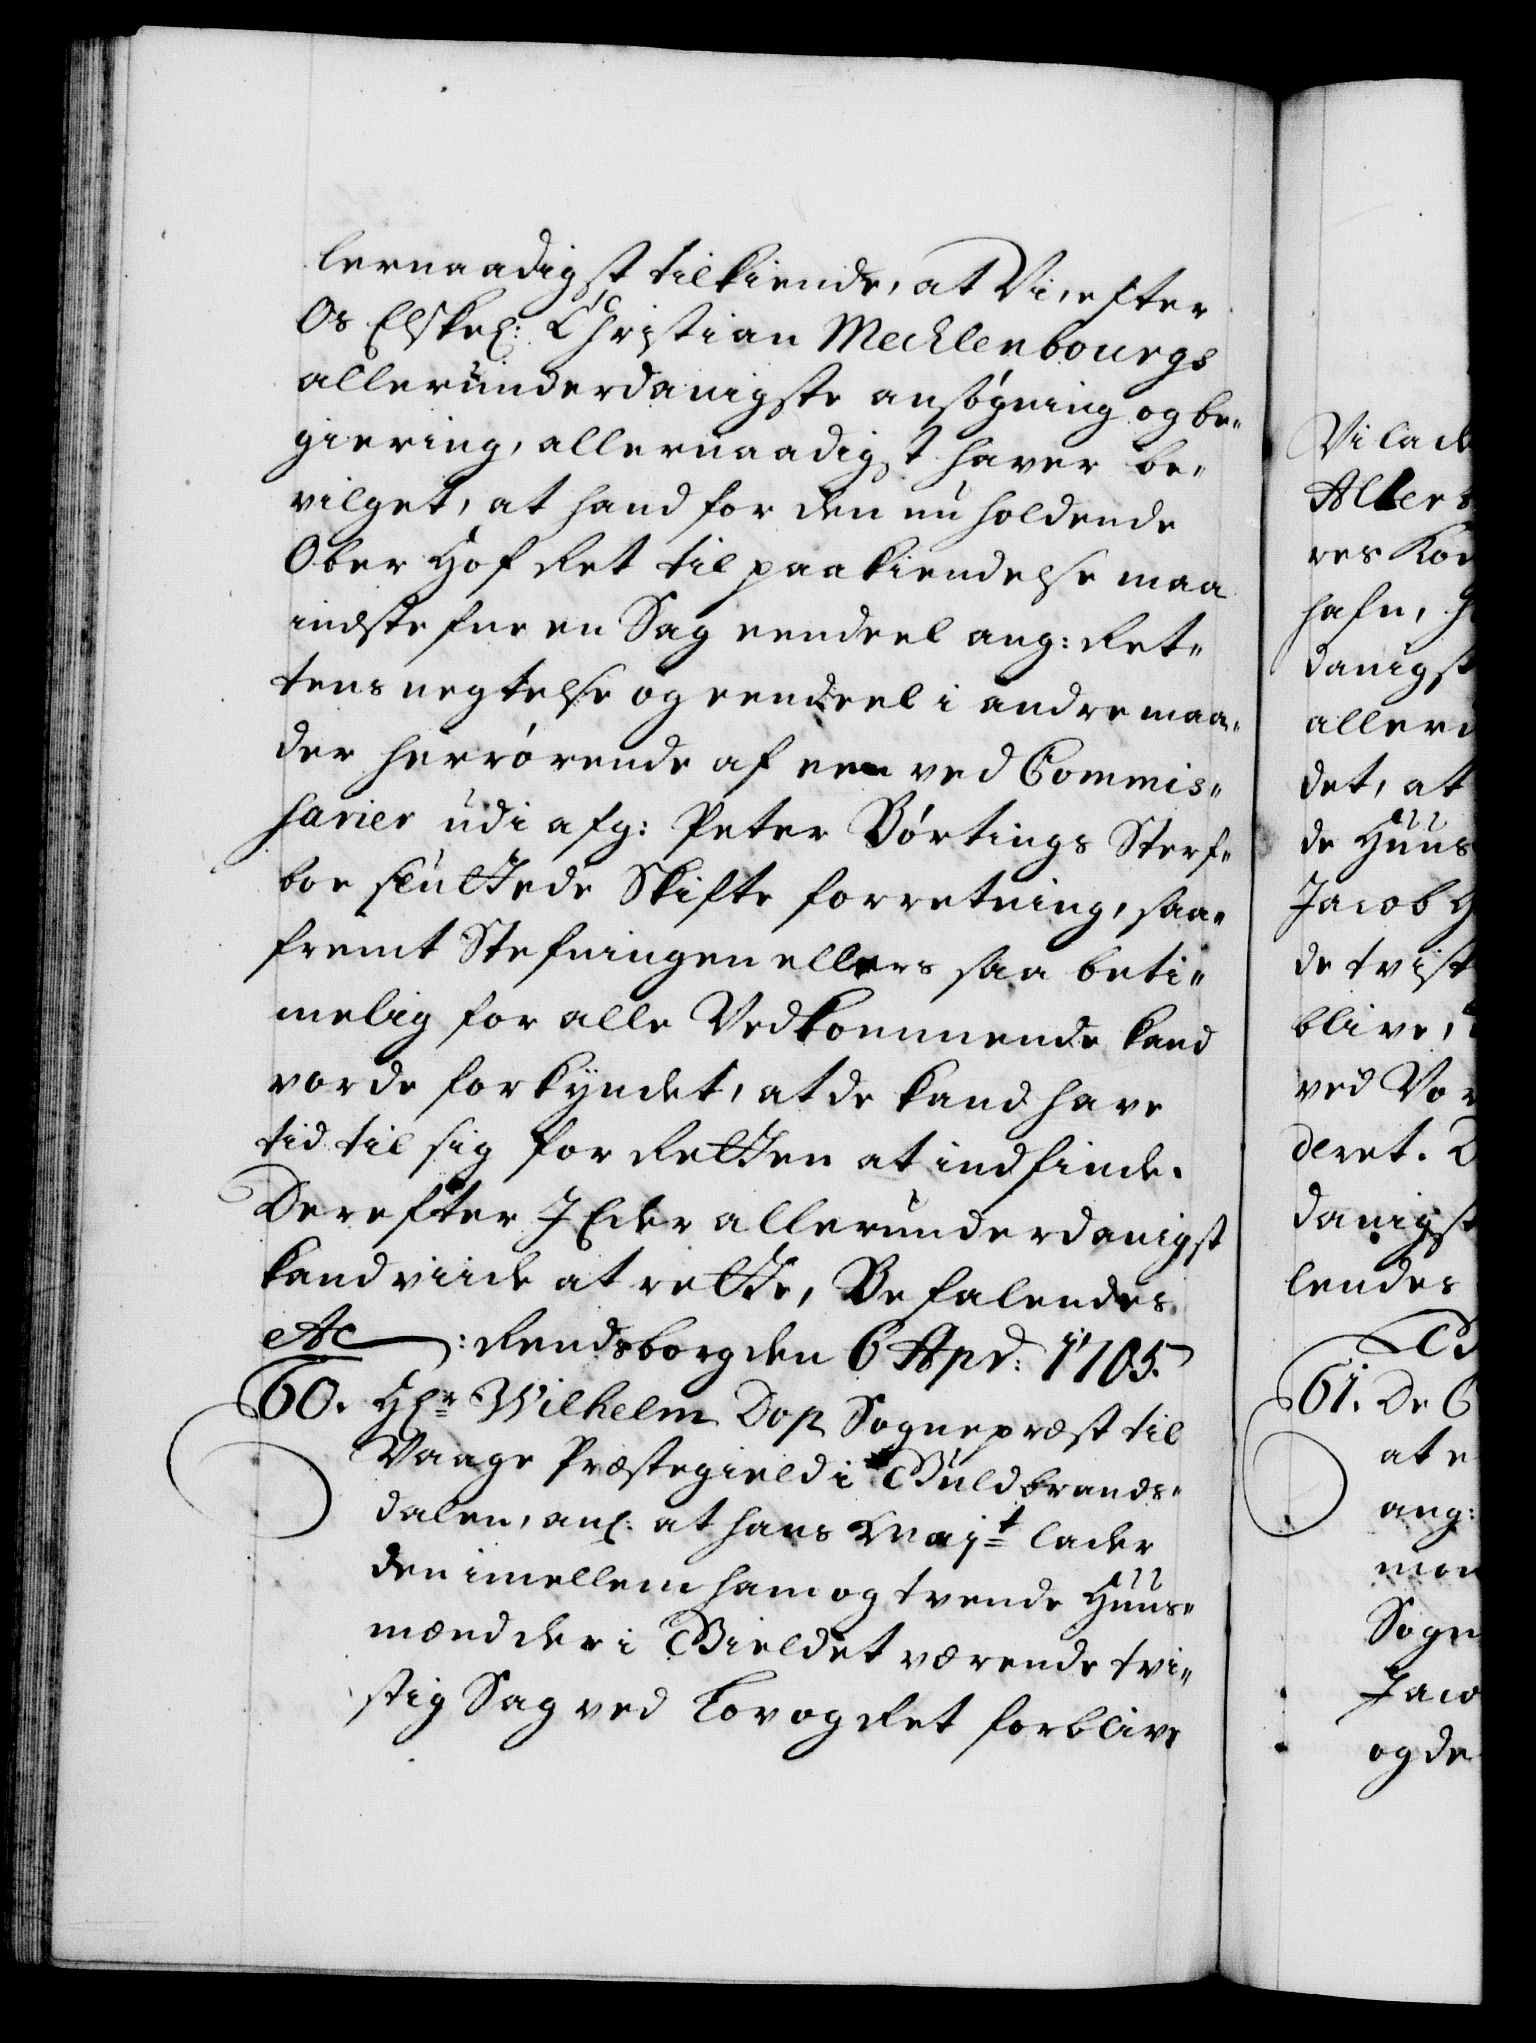 lernaadigst tilkiende, at Vi, efter
Os Elskel: Christian Mecklenbourgs
allerunderdanigste ansøgning og be„
giering, allernaadigst haver be„
vilget, at hand for den nu holdende
Ober Hof Ret til paakiendelse maa
indstefne en Sag eendeel ang: Ret„
tens negtelse og eendeel i andre maa„
der herrørende af een ved Commis„
sarier udi afg: Peter Børtings Sterf„
boe sluttede Skifte forretning, saa„
fremt Stefningen ellers saa beti„
melig for alle Vedkommende kand
vorde forkyndet, at de kand have
tid til sig for Retten at indfinde.
Derefter I Eder allerunderdanigst
kand viide at rette, Befalendes
etc: Rendsborg den 6 Apr: 1705.
60. Hr Wilhelm Dop Sognepræst til
Vaage Præstegield i Guldbrands„
dalen, anl: at hans Majt lader
den imellem ham og tvende Huus„
mænd der i Gieldet værende tvi„
stig Sag ved Lov og Ret forblive
Vi lade
Aller
res Kon
hafn, h
danigst
alleru
det, at
de Huus
Jacob H
de tvist
blive,
ved Vor
deret. D
danigst
lendes
61. De
at e
ang:
mon
Sogn
Jaco
og de